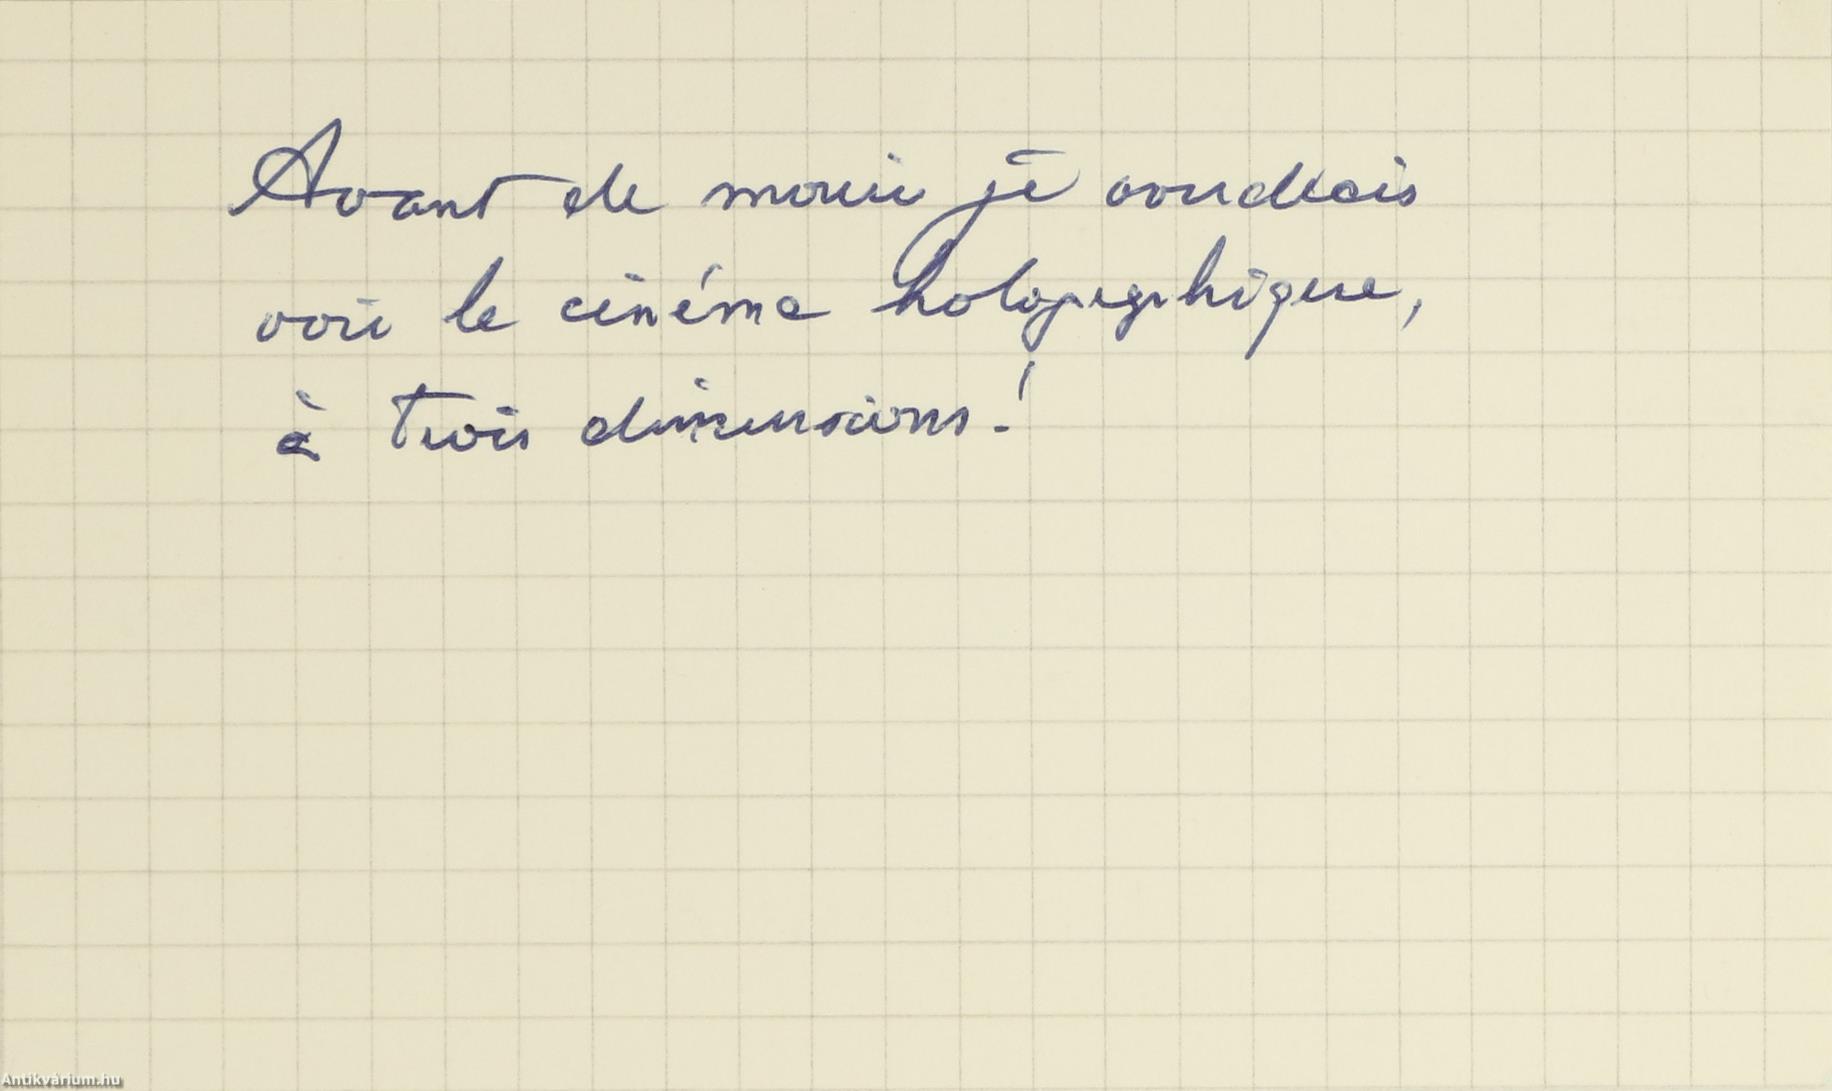 Avant de mourir je voudrais
voir le cinéma holographique,
à trois dimensions!
Antikvárium.hu